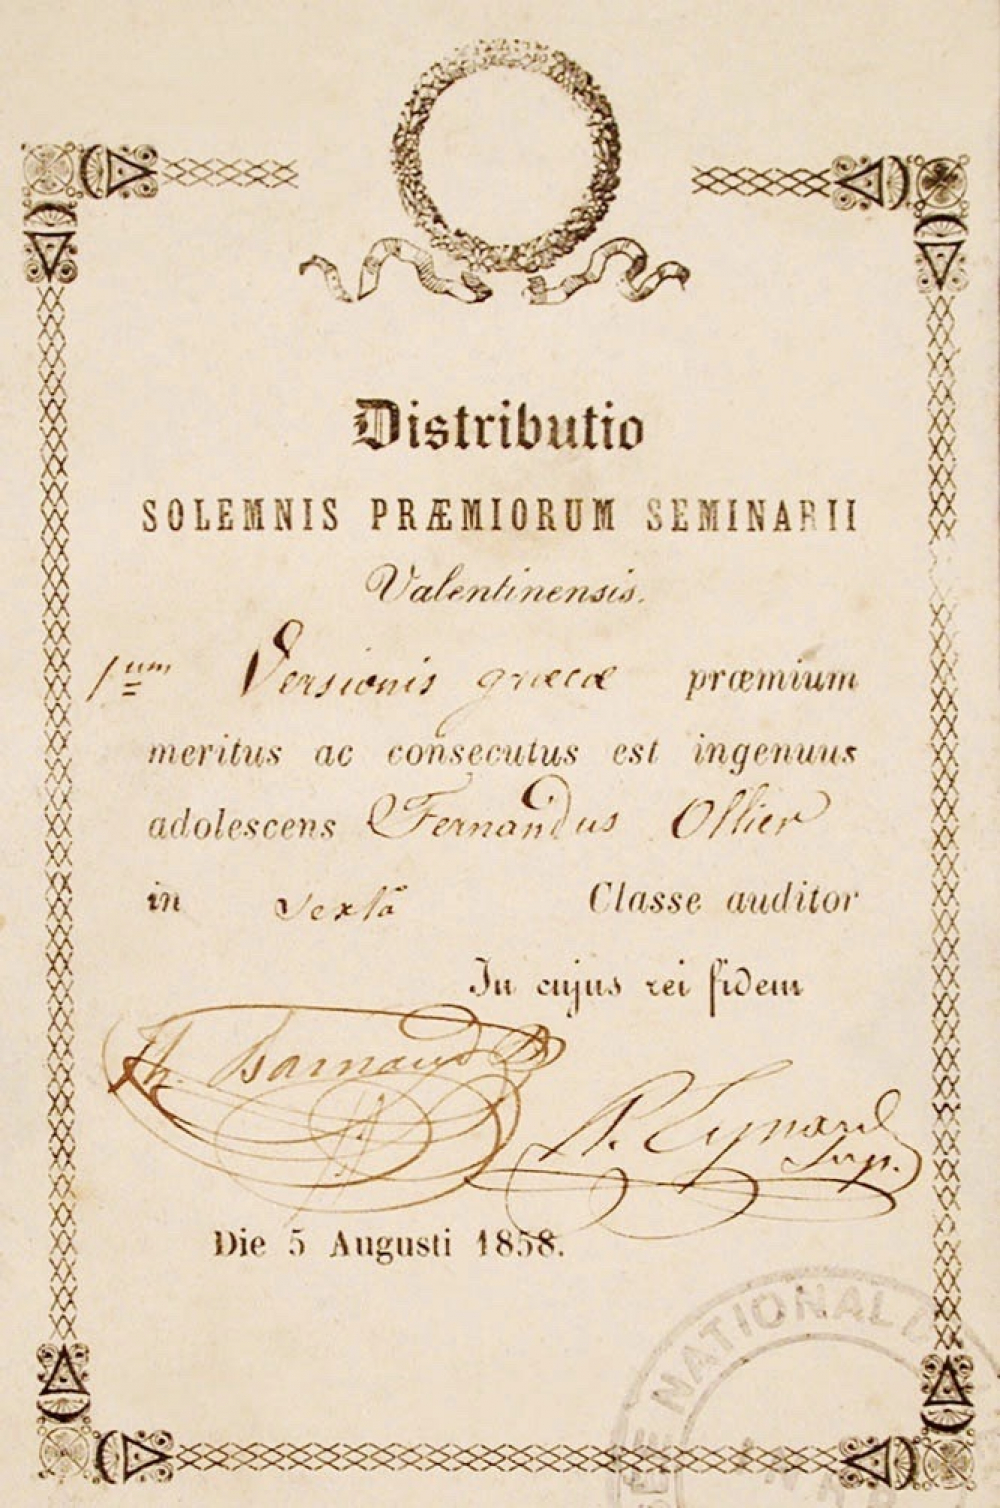 Distributio
SOLEMNIS PRÆMIORUM SEMINARII
Valentinensis.
1um Versionis græcæ præmium
meritus ac consecutus est ingenuus
adolescens Fernandus Ollier
in sextâ Classe auditor
In cujus rei fidem
Th. Barnaud
Sup.
Die 5 Augusti 1858.
NATIONAL